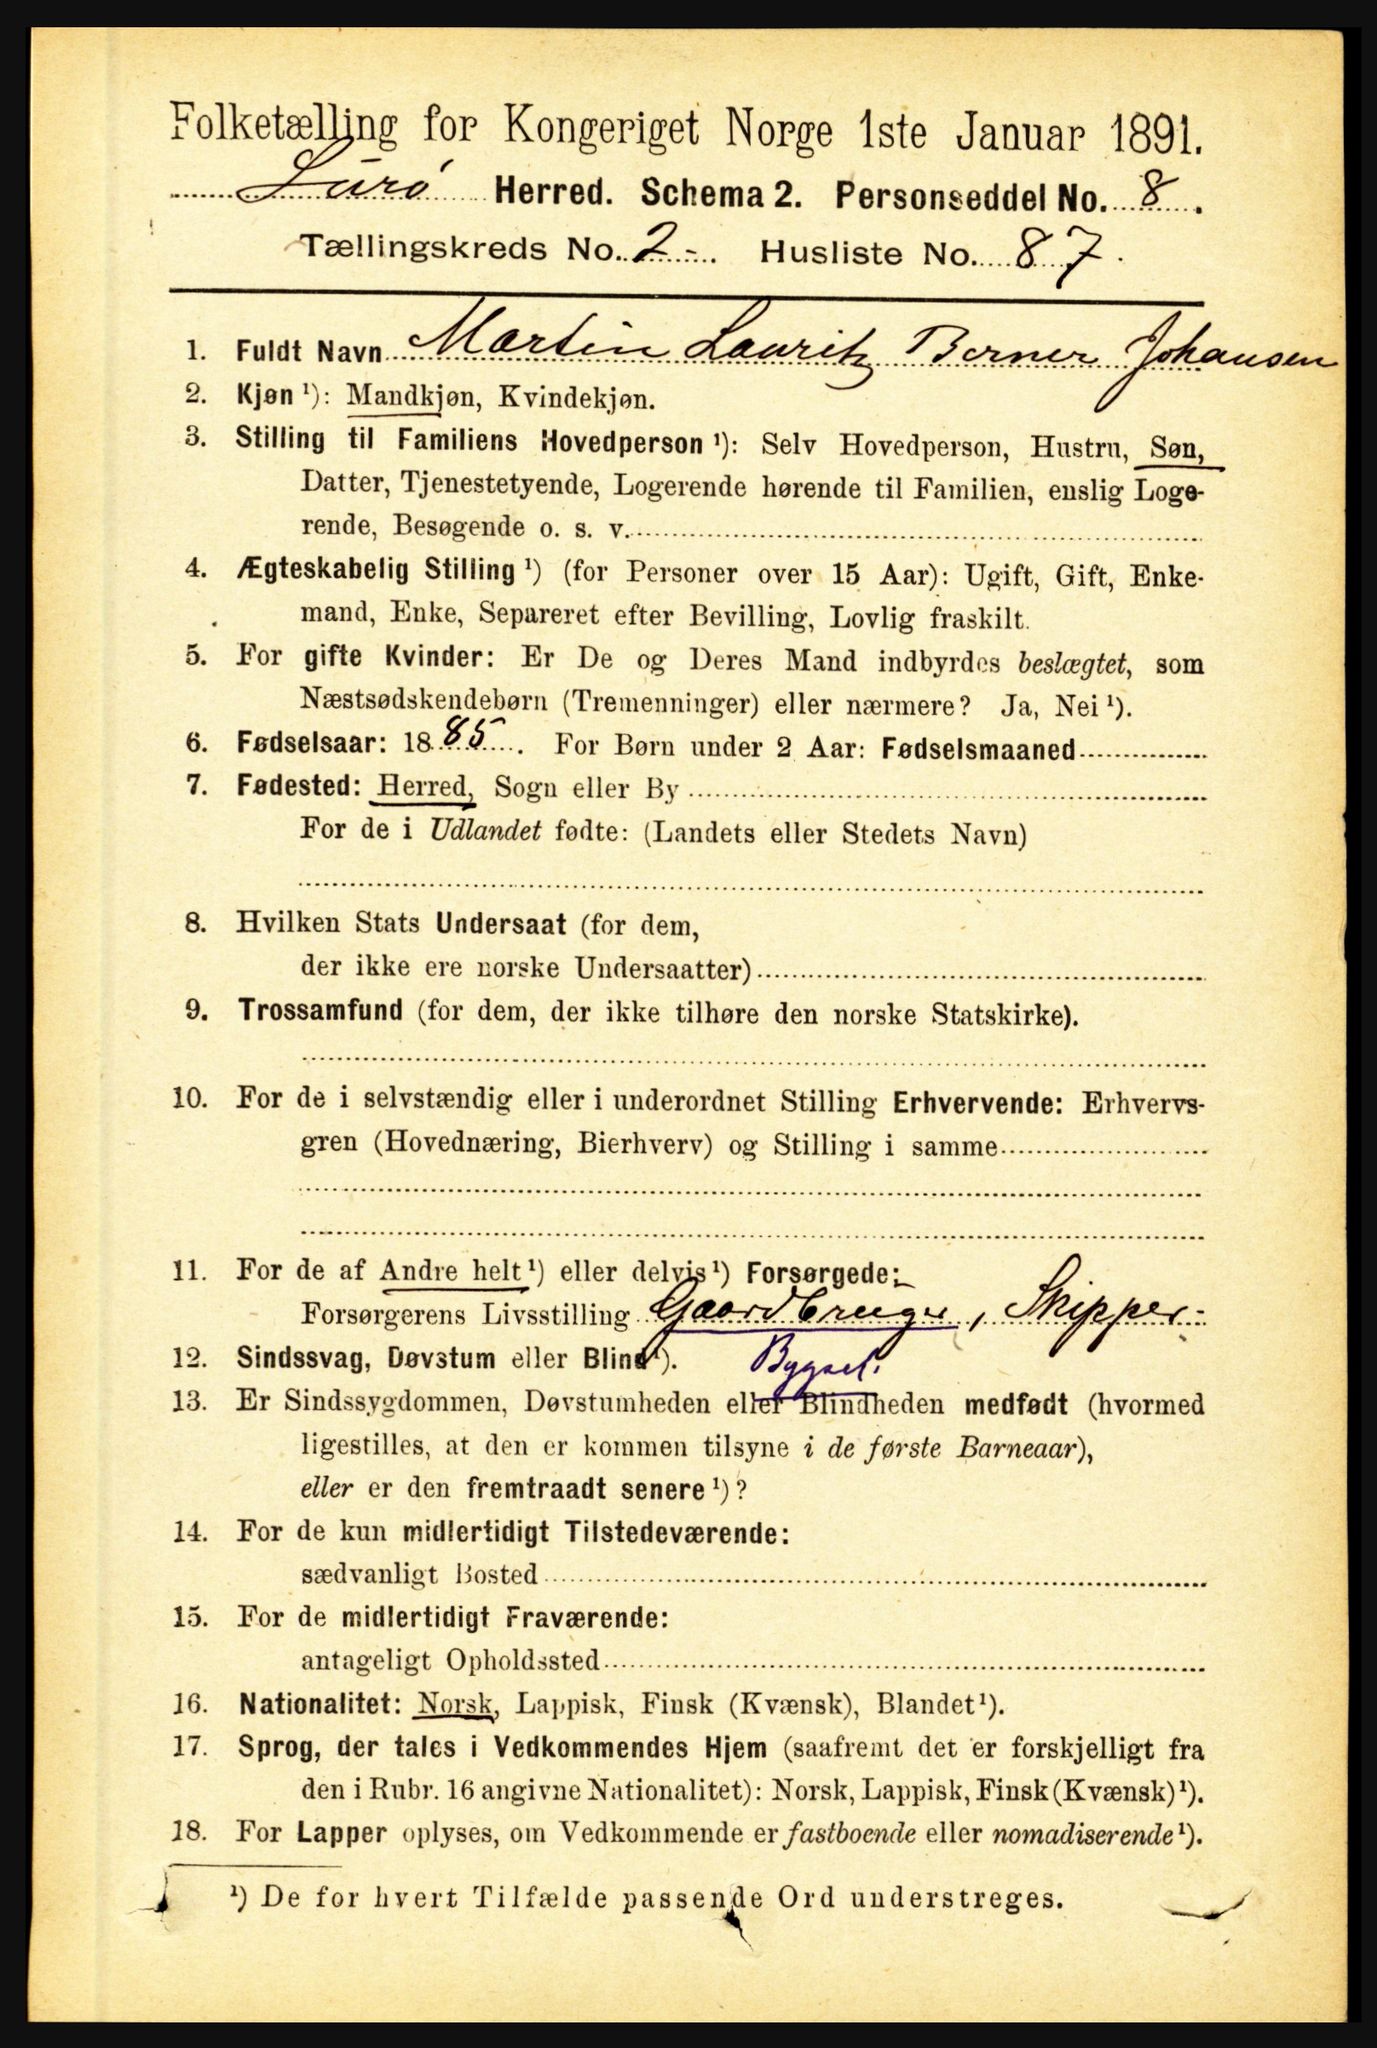 Folketælling for Kongeriget Norge 1ste Januar 1891.
Lurø Herred. Schema 2. Personseddel No. 8.
Tællingskreds No. 2. Husliste No. 87.
1. Fuldt Navn Martin Lauritz Berner Johansen
2. Kjøn ¹): Mandkjøn, Kvindekjøn.
3. Stilling til Familiens Hovedperson ¹): Selv Hovedperson, Hustru, Søn,
Datter, Tjenestetyende, Logerende hørende til Familien, enslig Loge-
rende, Besøgende o. s. v.
4. Ægteskabelig Stilling ¹) (for Personer over 15 Aar): Ugift, Gift, Enke-
mand, Enke, Separeret efter Bevilling, Lovlig fraskilt.
5. For gifte Kvinder: Er De og Deres Mand indbyrdes beslægtet, som
Næstsødskendebørn (Tremenninger) eller nærmere? Ja, Nei ¹).
6. Fødselsaar: 1885. For Børn under 2 Aar: Fødselsmaaned
7. Fødested: Herred, Sogn eller By
For de i Udlandet fødte: (Landets eller Stedets Navn)
8. Hvilken Stats Undersaat (for dem,
der ikke ere norske Undersaatter)
9. Trossamfund (for dem, der ikke tilhøre den norske Statskirke).
10. For de i selvstændig eller i underordnet Stilling Erhvervende: Erhvervs-
gren (Hovednæring, Bierhverv) og Stilling i samme
11. For de af Andre helt ¹) eller delvis ¹) Forsørgede:
Forsørgerens Livsstilling Gaardbruger, Skipper
12. Sindssvag, Døvstum eller Blind ¹). Bygsel.
13. Er Sindssygdommen, Døvstumheden eller Blindheden medfødt (hvormed
ligestilles, at den er kommen tilsyne i de første Barneaar),
eller er den fremtraadt senere ¹)?
14. For de kun midlertidigt Tilstedeværende:
sædvanligt Bosted
15. For de midlertidigt Fraværende:
antageligt Opholdssted
16. Nationalitet: Norsk, Lappisk, Finsk (Kvænsk), Blandet ¹).
17. Sprog, der tales i Vedkommendes Hjem (saafremt det er forskjelligt fra
den i Rubr. 16 angivne Nationalitet): Norsk, Lappisk, Finsk (Kvænsk) ¹).
18. For Lapper oplyses, om Vedkommende er fastboende eller nomadiserende ¹).
¹) De for hvert Tilfælde passende Ord understreges.